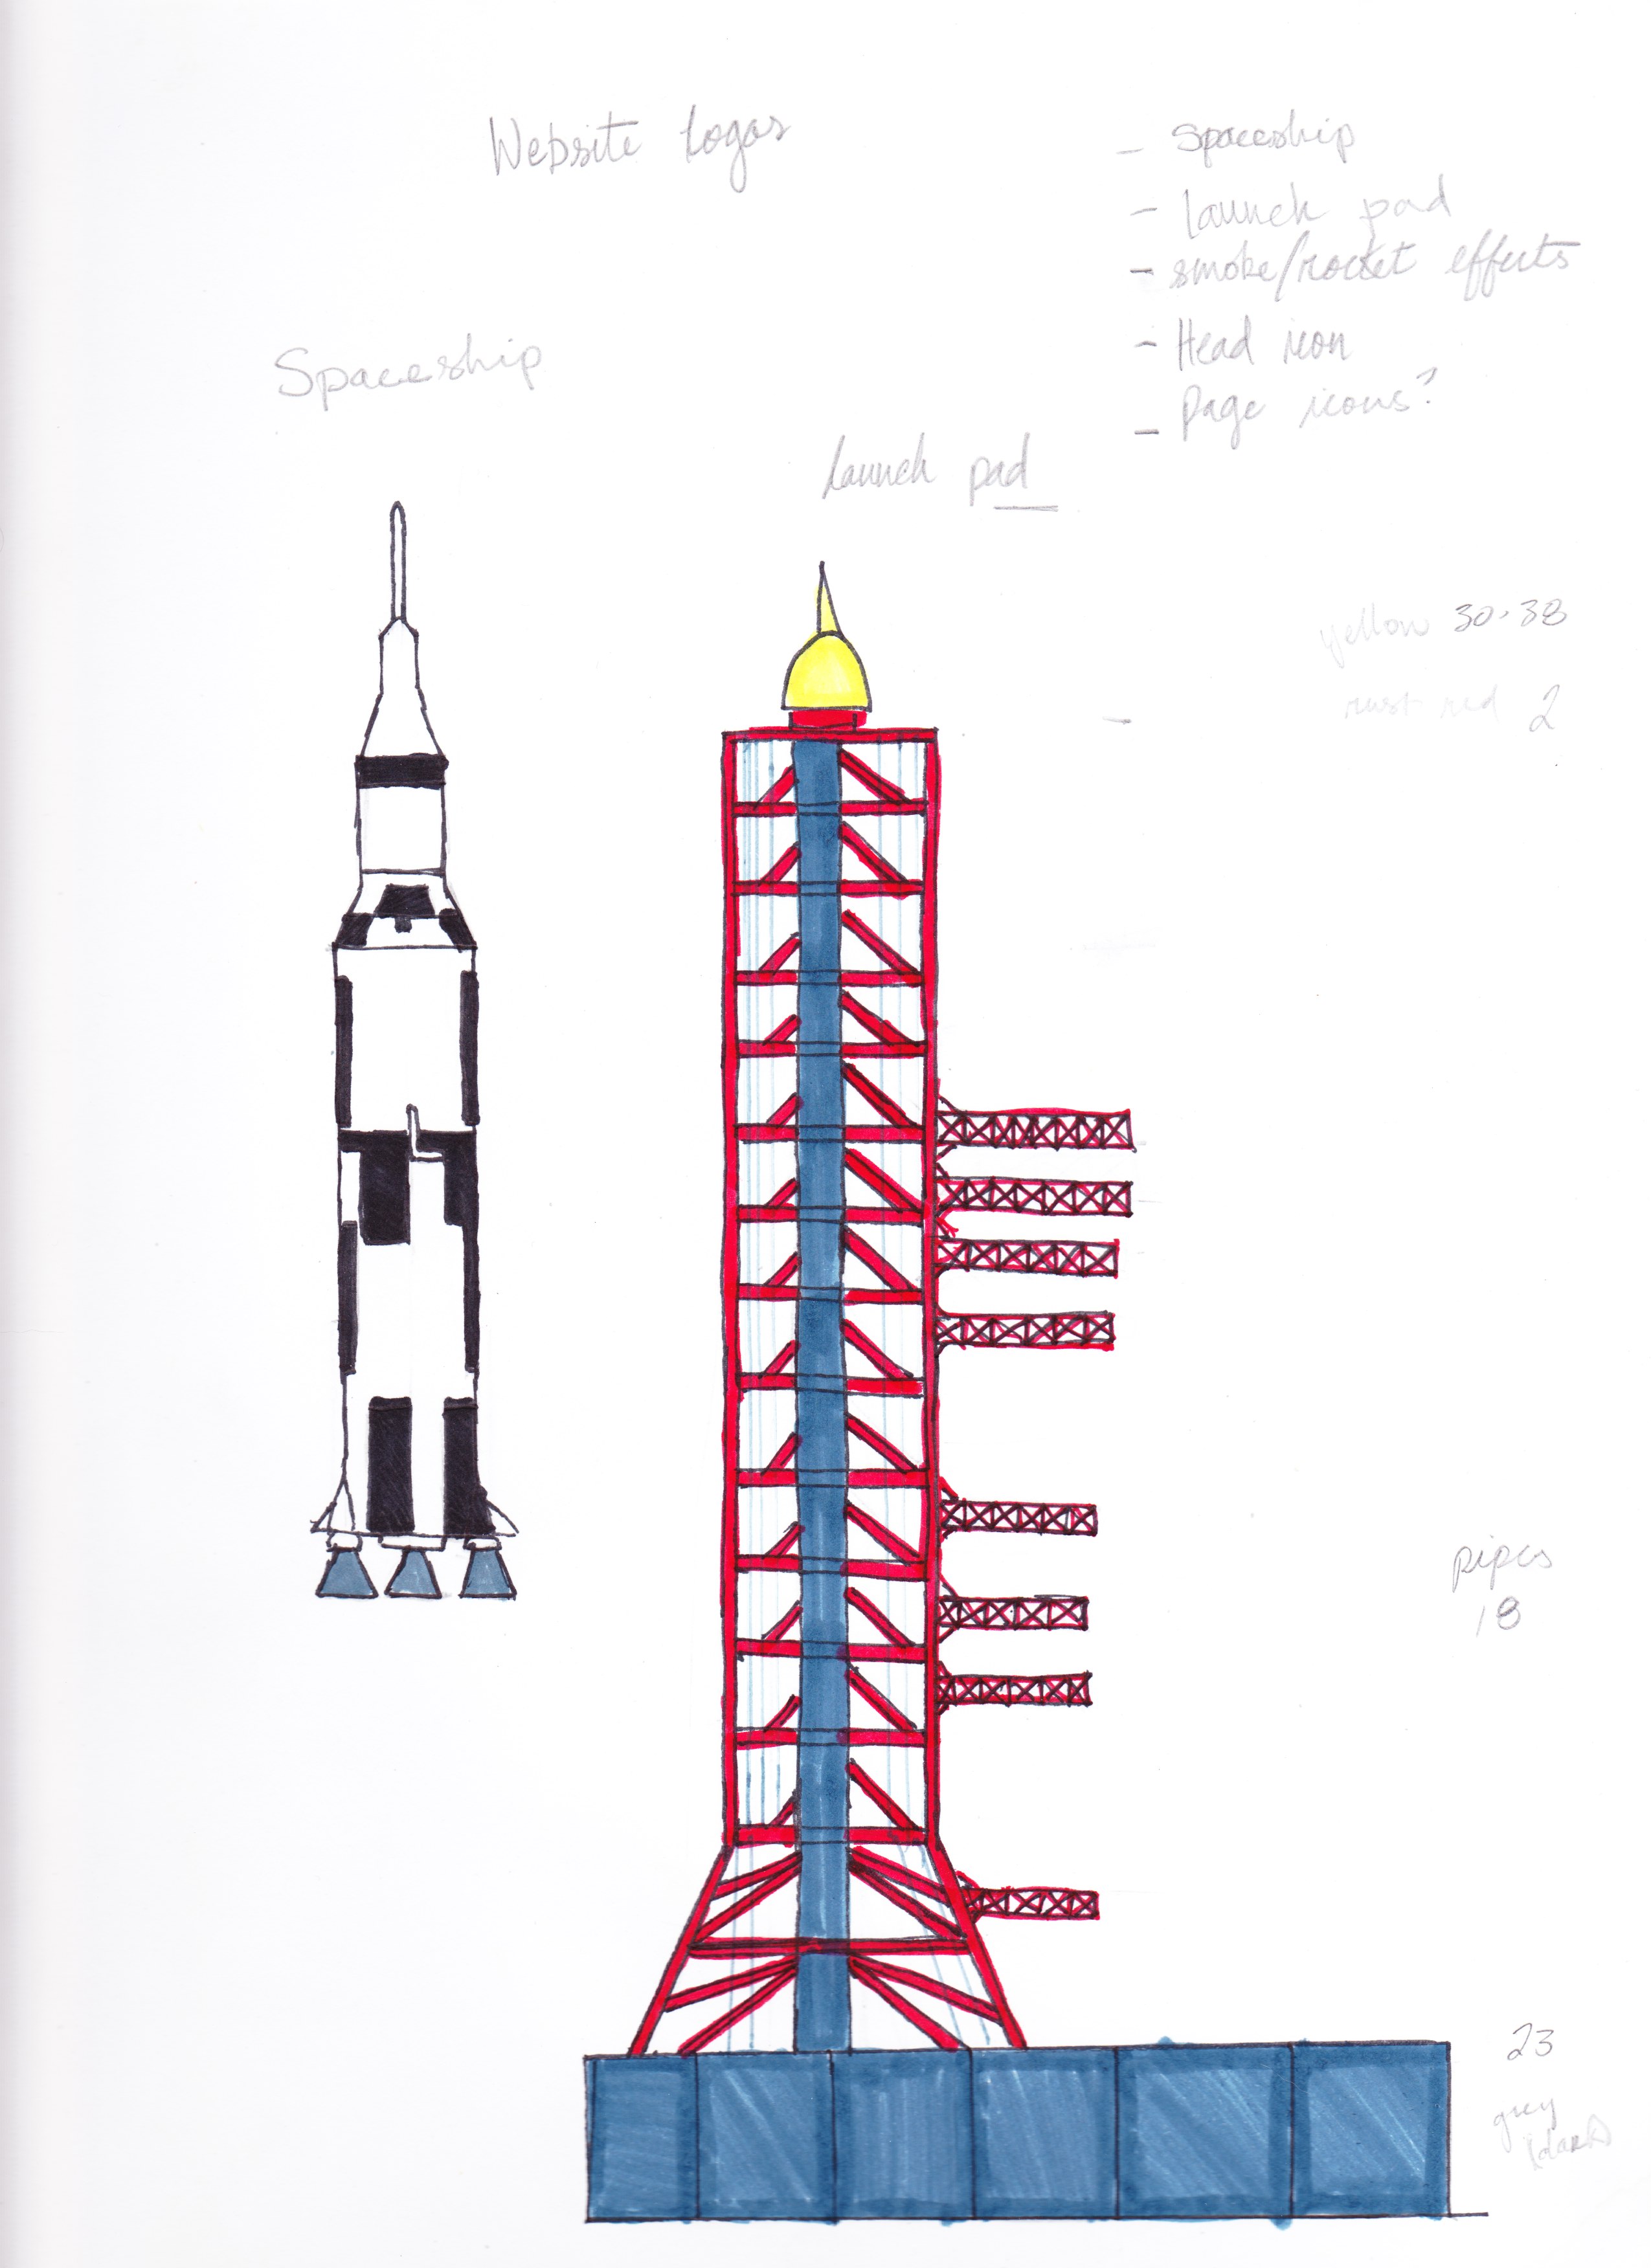 Website logos
- Spaceship
- launch pad
- smoke/rocket effects
- Head icon
- Page icons?
Spaceship
launch pad
yellow 30.38
rust red 2
pipes
18
23
grey
(dark)